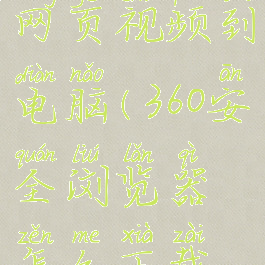 网页视频到
diàn nǎo ān
电脑(360安
quán liú lǎn qì
全浏览器
zěn me xià zài
怎么下载